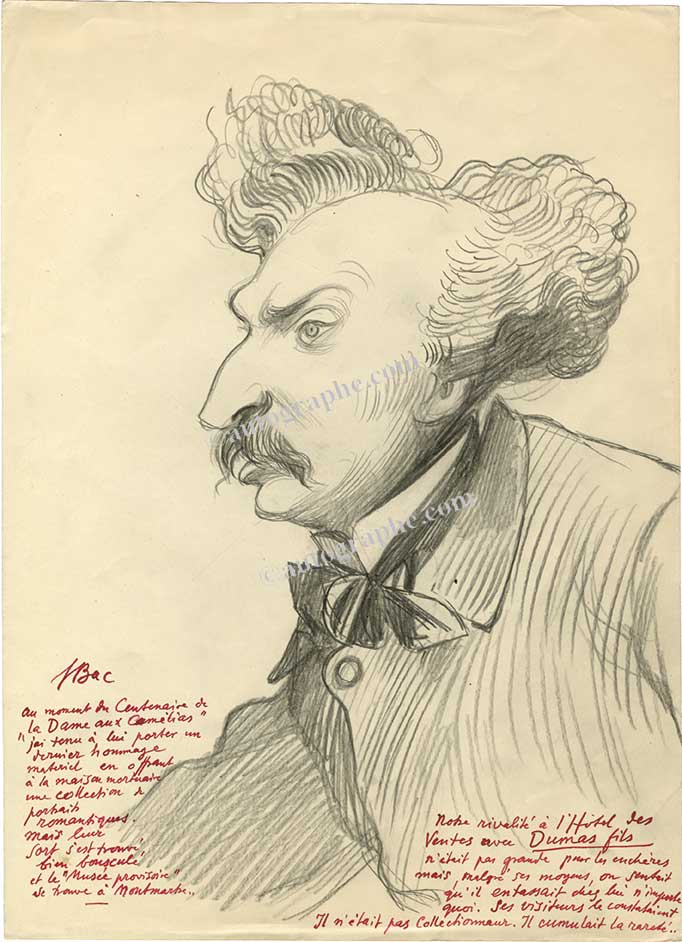 ©autographe.com
©autographe.com
Bac
au moment du Centenaire de
la Dame aux Camélias"
"j'ai tenu à lui porter un
dernier hommage
materiel en offrant
à la maison mortuaire
une collection de
portraits
romantiques.
mais leur
sort s'est trouvé,
bien bousculé
et le "Musée provisoire"
se trouve à Montmartre..
Notre rivalité à l'Hôtel des
Ventes avec Dumas fils
n'était pas grande pour les enchères
mais, malgré ses moyens, on sentait
qu'il entassait chez lui n'importe
quoi. Ses visiteurs le constataient
Il n'était pas Collectionneur. Il cumulait la rareté..